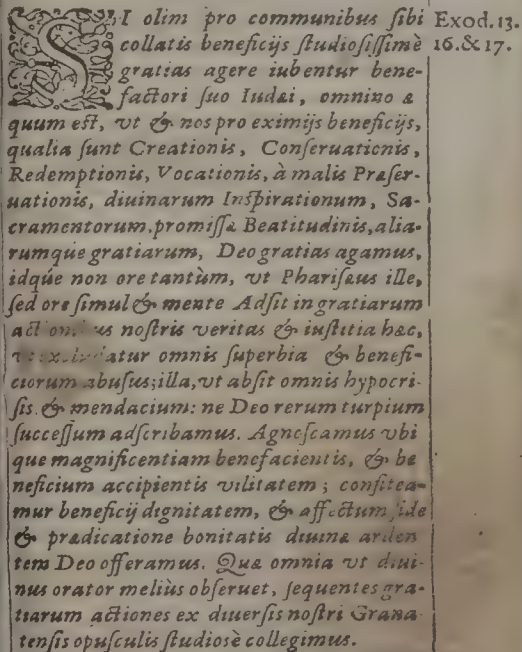 SI olim pro communibus sibi
Exod. 13.
collatis beneficijs studiosissimè
16. & 17.
gratias agere iubentur bene-
factori suo Iudæi, omnino æ
quum est, vt & nos pro eximijs beneficijs,
qualia sunt Creationis, Conseruationis,
Redemptionis, Vocationis, à malis Præser-
uationis, diuinarum Inspirationum, Sa-
cramentorum, promissæ Beatitudinis, alia-
rumque gratiarum, Deo gratias agamus,
idqúe non ore tantùm, vt Pharisæus ille,
sed ore simul & mente Adsit in gratiarum
nostris veritas & iustitia hæc,
omnis superbia & benefi-
ciorum abusus; illa, vt absit omnis hypocri-
sis & mendacium: ne Deo rerum turpium
successum adscribamus. Agnoscamus vbi
que magnificentiam benefacientis, & be
neficium accipientis vilitatem; confitea-
mur beneficij dignitatem, & affectum fide
& prædicatione bonitatis diuinæ arden
tem Deo offeramus. Quæ omnia vt diui-
nus orator meliùs obseruet, sequentes gra-
tiarum actiones ex diuersis nostri Grana-
tensis opusculis studiosè collegimus.